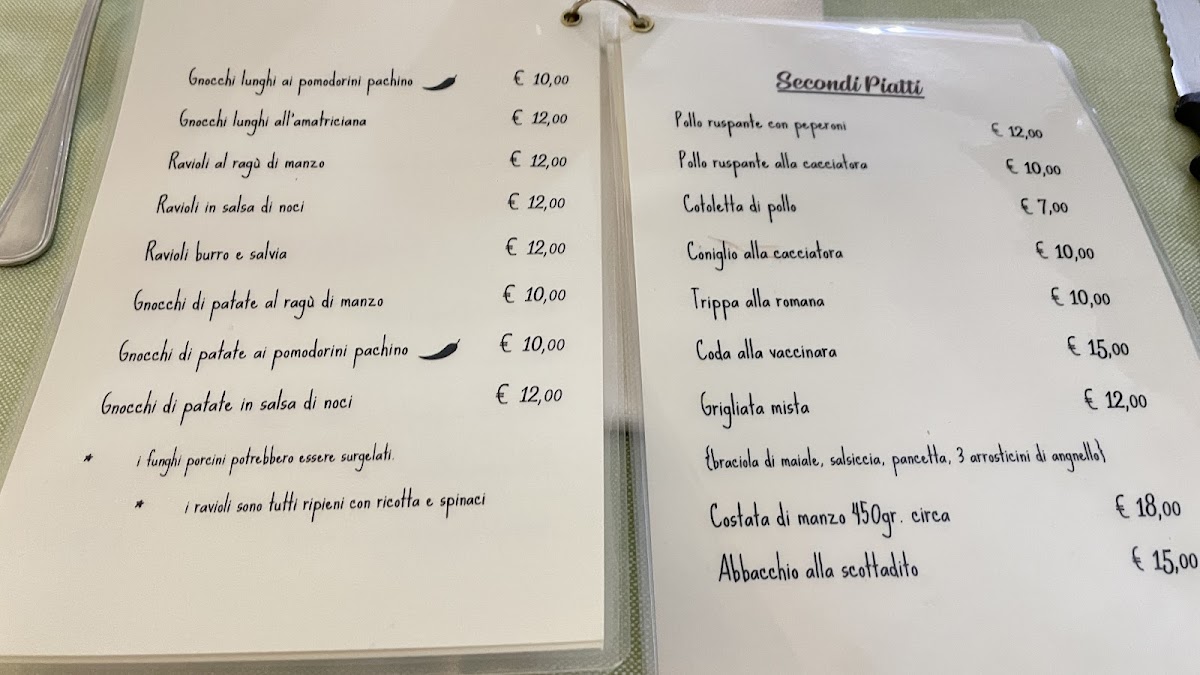 Gnocchi lunghi ai pomodorini pachino € 10,00
Gnocchi lunghi all'amatriciana € 12,00
Ravioli al ragù di manzo € 12,00
Ravioli in salsa di noci € 12,00
Ravioli burro e salvia € 12,00
Gnocchi di patate al ragù di manzo € 10,00
Gnocchi di patate ai pomodorini pachino € 10,00
Gnocchi di patate in salsa di noci € 12,00
* i funghi porcini potrebbero essere surgelati.
* i ravioli sono tutti ripieni con ricotta e spinaci
Secondi Piatti
Pollo ruspante con peperoni € 12,00
Pollo ruspante alla cacciatora € 10,00
Cotoletta di pollo € 7,00
Coniglio alla cacciatora € 10,00
Trippa alla romana € 10,00
Coda alla vaccinara € 15,00
Grigliata mista € 12,00
(braciola di maiale, salsiccia, pancetta, 3 arrosticini di angnello)
Costata di manzo 450gr. circa € 18,00
Abbacchio alla scottadito € 15,00